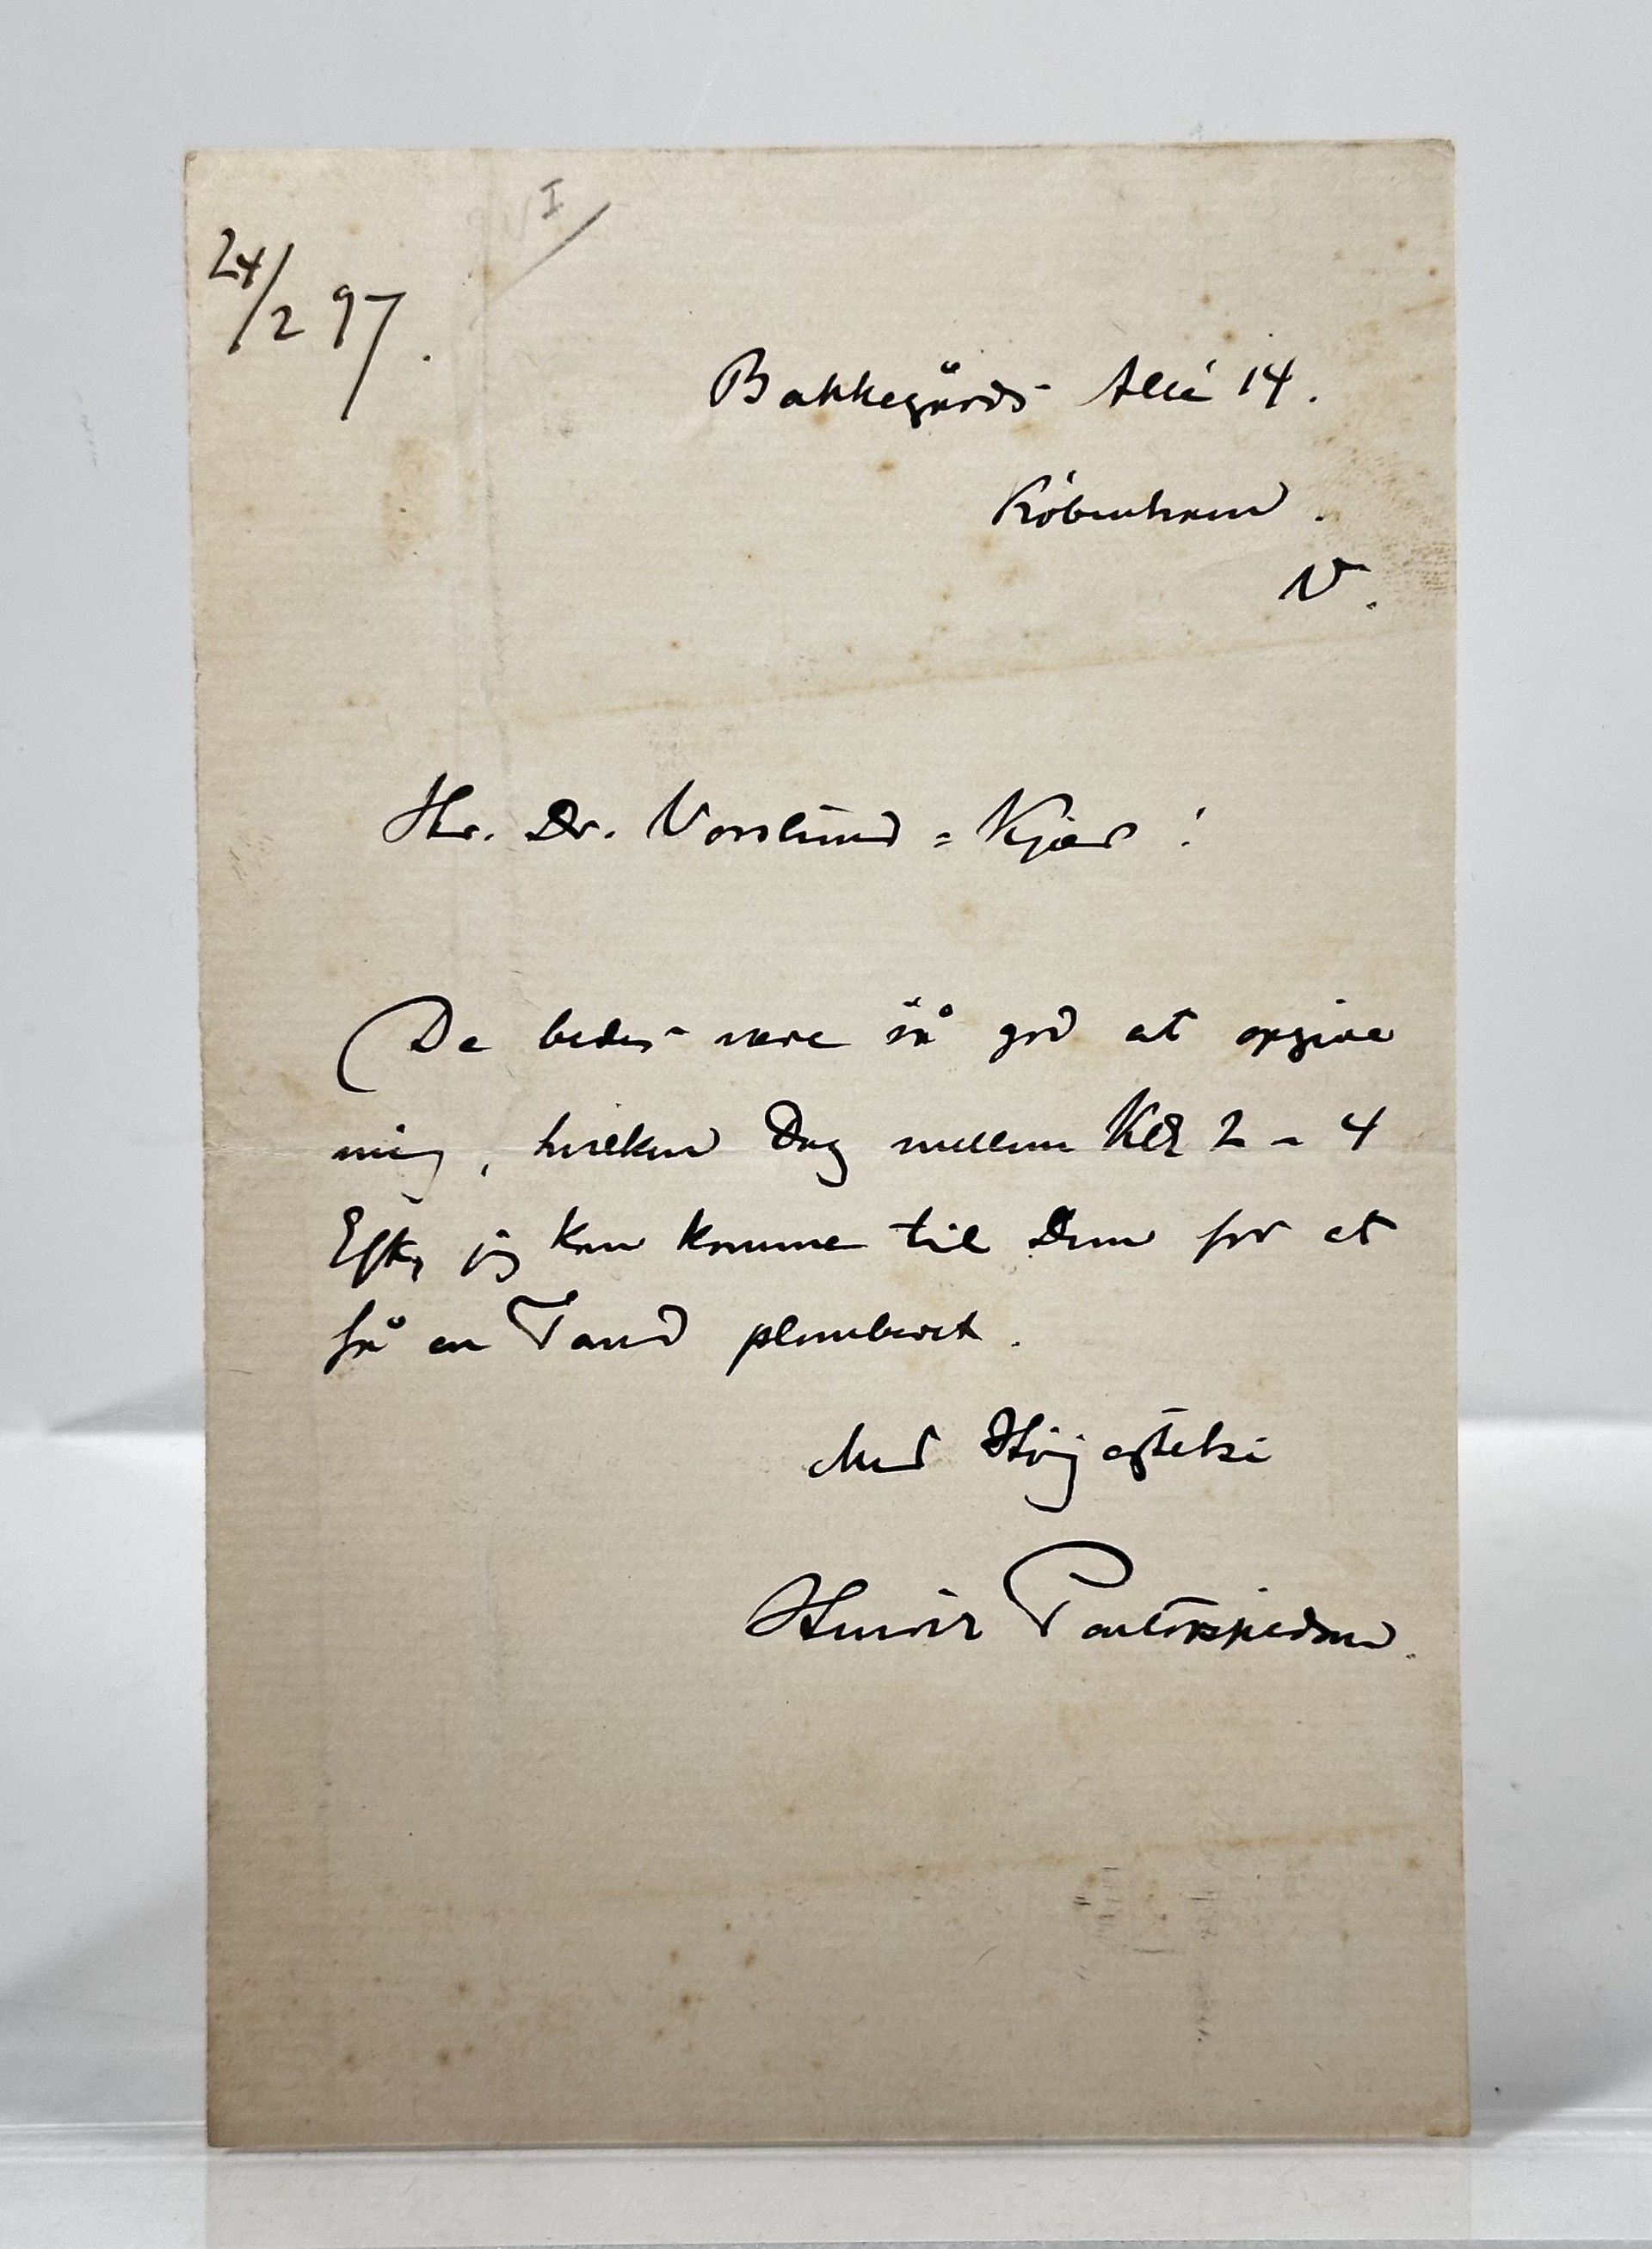 24/2 97.
Bakkegårds Allé 14.
København.
V.
Hr. Dr. Vorslund-Kjær!
De bedes være så god at opgive
mig, hvilken Dag mellem Kl 2-4
Eft, jeg kan komme til Dem for at
få en Tand plomberet.
Med Højagtelse
Henrik Pontoppidan.